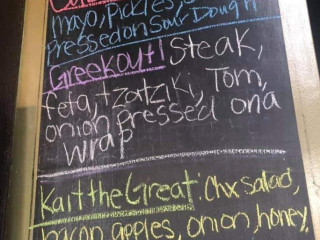 mayo, pickles,
pressed on sour Dough
Greekout! Steak,
feta, tzatziki, Tom,
onion pressed on a
wrap
Kait the Great: Chx salad,
bacon, apples, onion, honey,